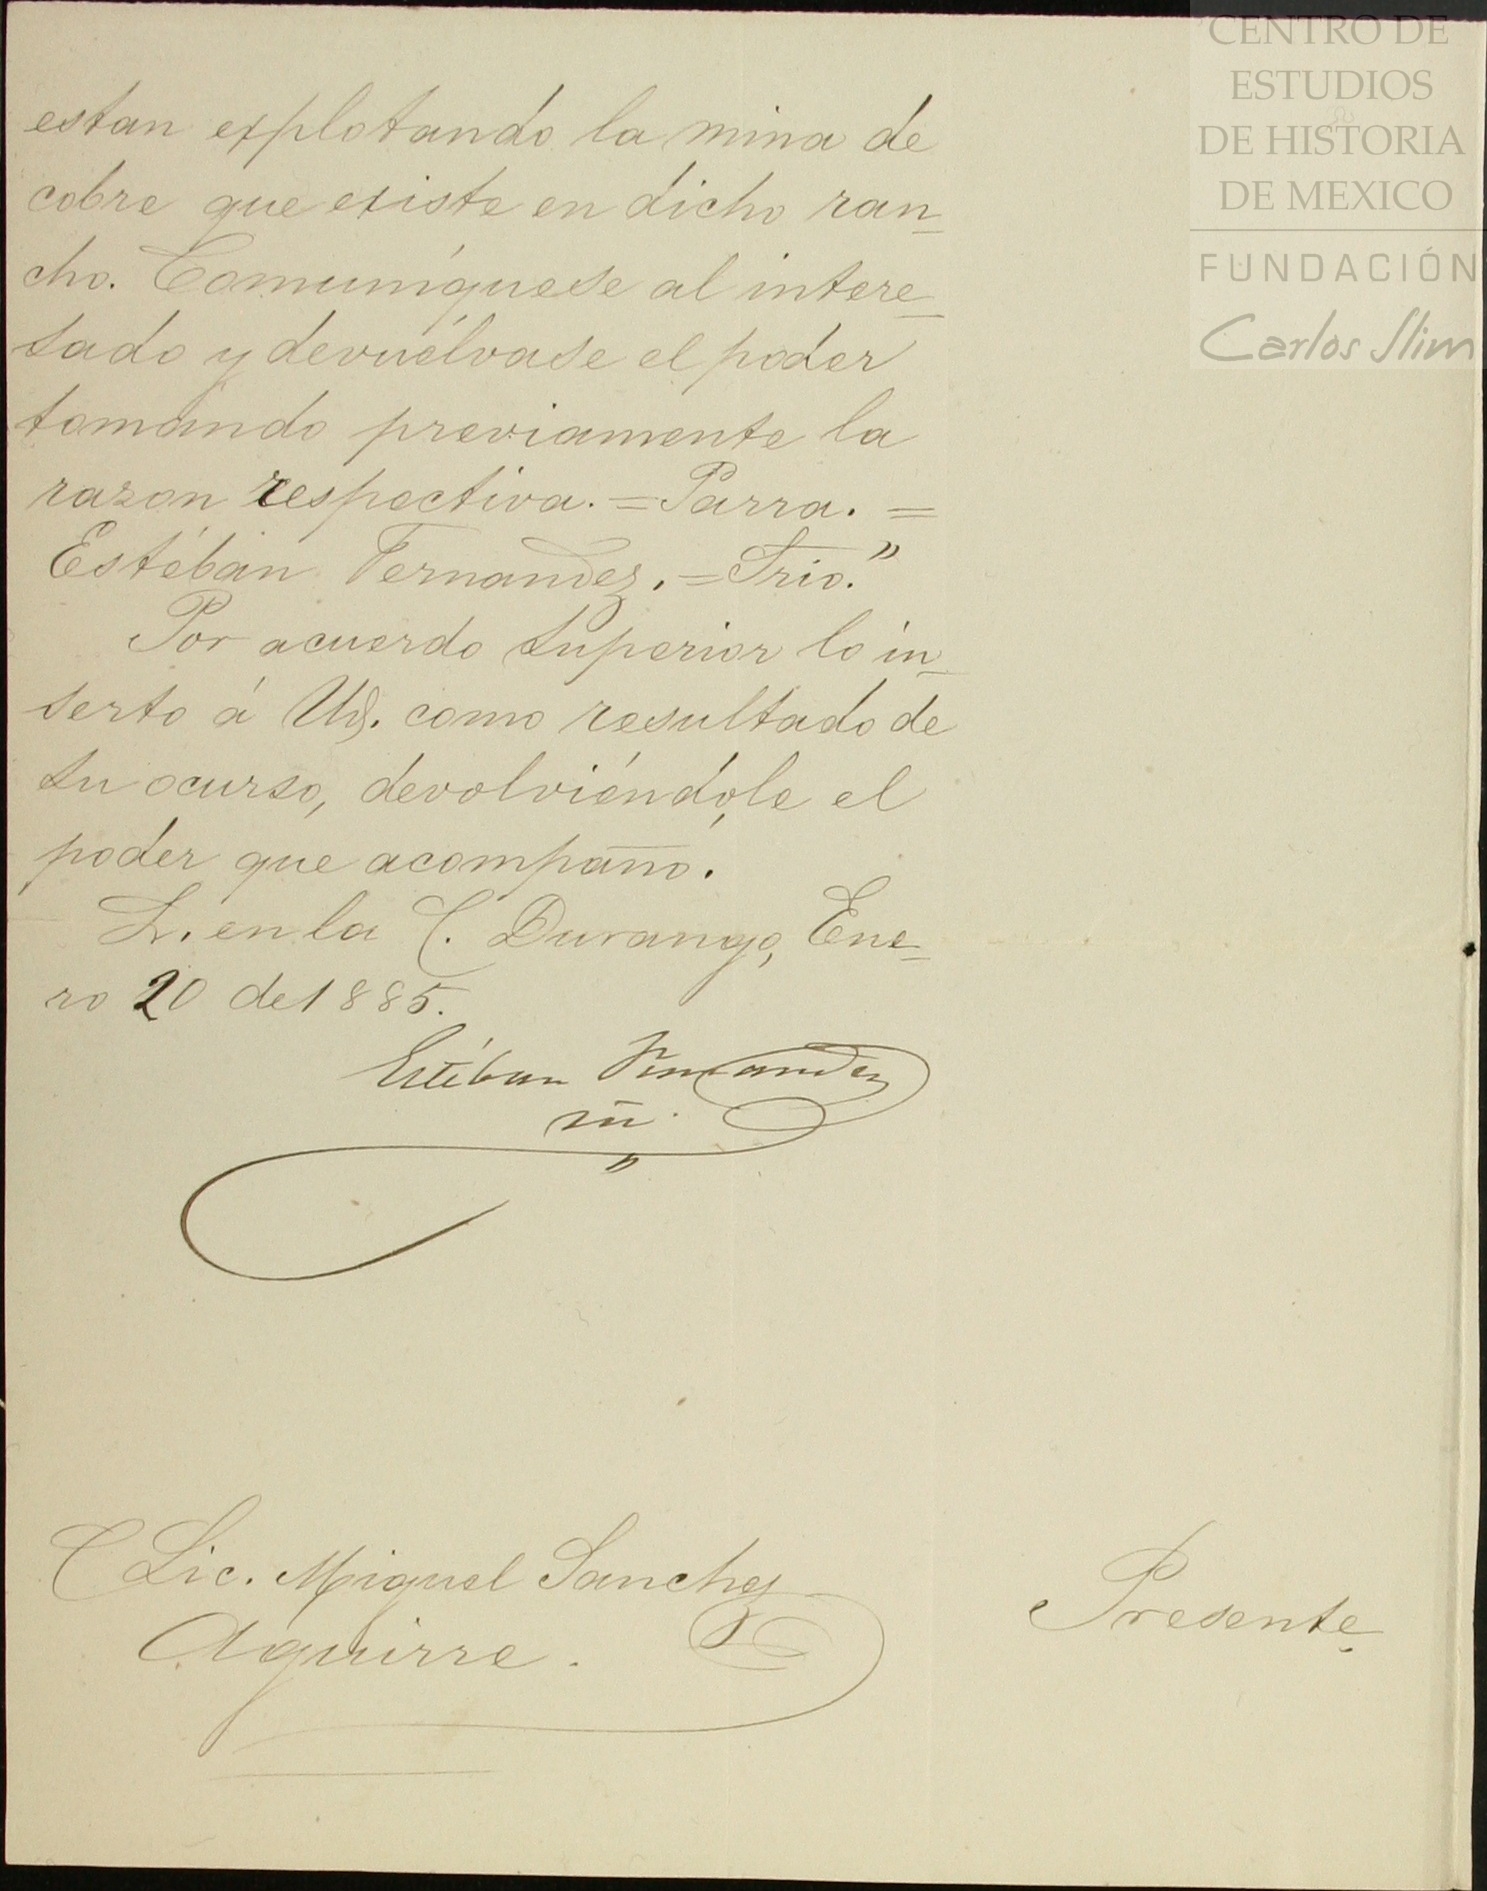 CENTRO DE
ESTUDIOS
DE HISTORIA
DE MEXICO
FUNDACIÓN
Carlos Slim
estan explotando la mina de
cobre que existe en dicho ran_
cho. Comuníquese al intere_
sado y devuélvase el poder
tomando previamente la
razon respectiva.=Parra.=
Estéban Fernandez.=Srio."
Por acuerdo superior lo in_
serto á Ud. como resultado de
su ocurso, devolviéndole el
poder que acompañó.
L. en la C. Durango, Ene_
ro 20 de 1885.
Estéban Fernandez
C Lic. Miguel Sanchez
Aguirre.
Presente